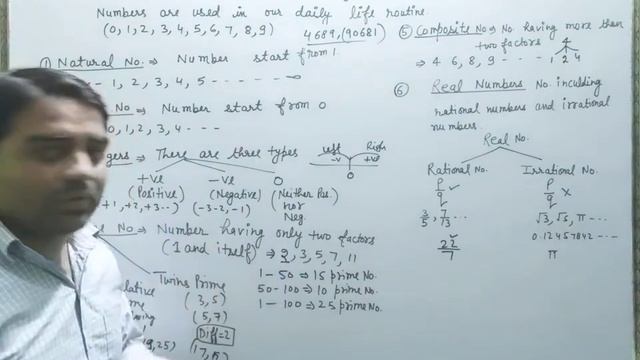 Numbers are used in our daily life routine.
(0, 1, 2, 3, 4, 5, 6, 7, 8, 9) 4689, (90681)
① Natural No. ⇒ Number start from 1.
1, 2, 3, 4, 5 - - - - - - ∞
No ⇒ Number start from 0
0, 1, 2, 3, 4 - - -
gers ⇒ There are three types
left -v 0 Right +ve
+ve -ve 0
(Positive) (Negative) (Neither Pos.
+1, +2, +3--) (-3-2,-1) nor
Neg.
No ⇒ Number having only two factors
(1 and itself) ⇒ 2, 3, 5, 7, 11
1 - 50 ⇒ 15 prime No.
50 - 100 ⇒ 10 prime No.
1 - 100 ⇒ 25 prime No.
lative Twins Prime
me (3, 5)
(5, 7)
Diff=2
,25)
⑤ Composite No ⇒ No. having more than
two factors 4
⇒ 4 6, 8, 9 - - - - 1, 2 4
⑥ Real Numbers No. inculding
rational numbers and irrational
numbers.
Real No.
Rational No. Irrational No.
P/q ✓ P/q ×
3/5, 7/3 - - - √3, √5, π - - -
22/7 0.12457842 - - -
π